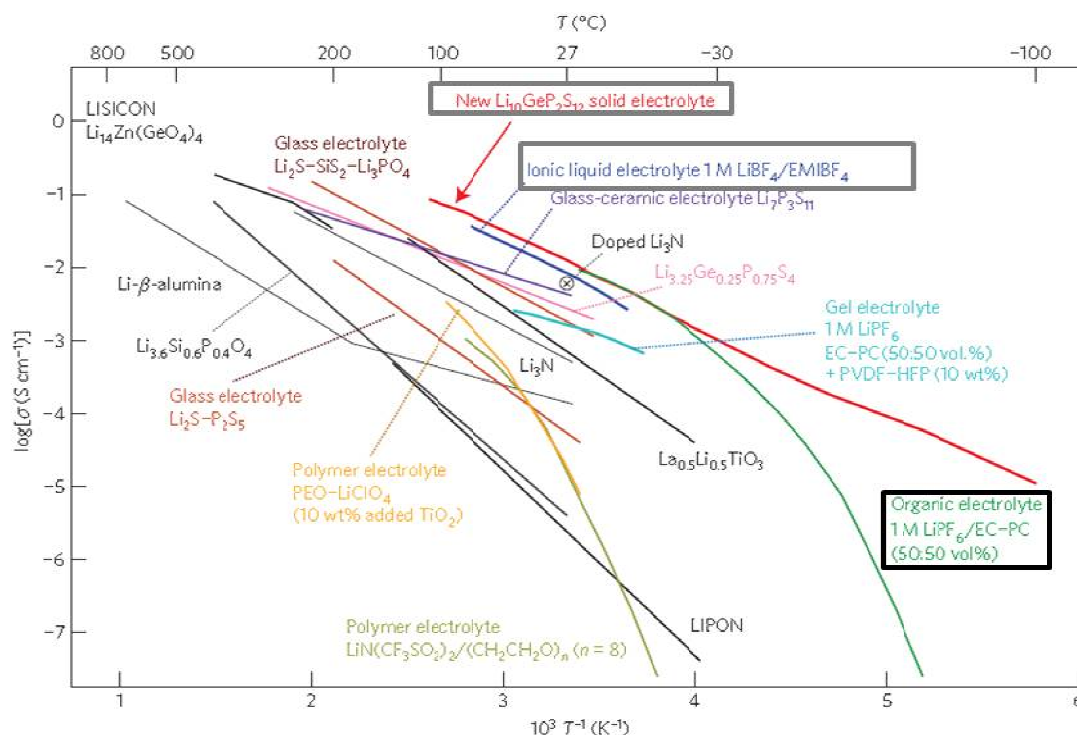 T (°C)
800 500 200 100 27 −30 −100
New Li₁₀GeP₂S₁₂ solid electrolyte
LISICON
Li₁₄Zn(GeO₄)₄
Glass electrolyte
Li₂S−SiS₂−Li₃PO₄
Ionic liquid electrolyte 1 M LiBF₄/EMIBF₄
Glass-ceramic electrolyte Li₇P₃S₁₁
Doped Li₃N
Li₃.₂₅Ge₀.₂₅P₀.₇₅S₄
Li-β-alumina
Gel electrolyte
1 M LiPF₆
EC−PC(50:50 vol.%)
+ PVDF−HFP (10 wt%)
Li₃.₆Si₀.₆P₀.₄O₄
Li₃N
Glass electrolyte
Li₂S−P₂S₅
La₀.₅Li₀.₅TiO₃
Polymer electrolyte
PEO−LiClO₄
(10 wt% added TiO₂)
Organic electrolyte
1 M LiPF₆/EC−PC
(50:50 vol%)
LIPON
Polymer electrolyte
LiN(CF₃SO₂)₂/(CH₂CH₂O)ₙ (n = 8)
log[σ (S cm⁻¹)]
0
−1
−2
−3
−4
−5
−6
−7
1 2 3 4 5 6
10³ T⁻¹ (K⁻¹)